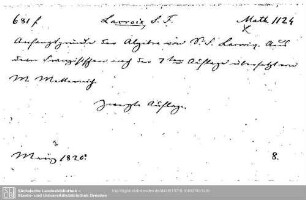 681 f Lacroix, S. F. Math 1124
Anfangsgründe der Algebra von S. F. Lacroix. Aus
dem Französischen nach der 7ten Auflage übersetzt von
M. Metternich
Zweyte Auflage.
Mainz 1820. 8.
Sächsische Landesbibliothek -
Staats- und Universitätsbibliothek Dresden